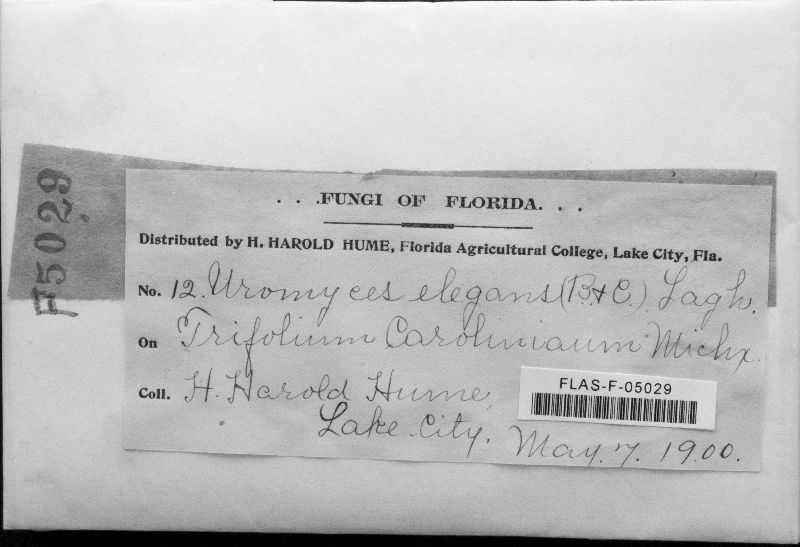 F5029
. . .FUNGI OF FLORIDA. . .
Distributed by H. HAROLD HUME, Florida Agricultural College, Lake City, Fla.
No. 12. Uromyces elegans (B. & C.) Lagh.
On Trifolium Carolinianum Michx.
Coll. H. Harold Hume,
FLAS-F-05029
Lake City, May. 7. 1900.